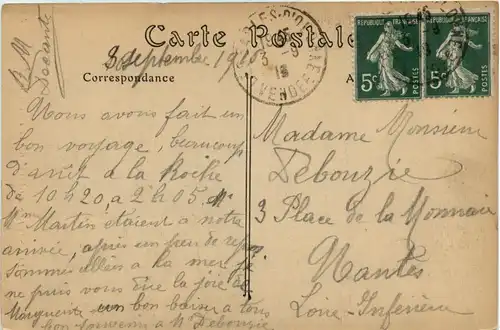 Carte Postale
3 Septembre 1918
Correspondance
RÉPUBLIQUE FRANÇAISE
5c
POSTES
RÉPUBLIQUE FRANÇAISE
5c
POSTES
VENDÉE
Nous avons fait un
bon voyage, beaucoup
d'arrêt à la Roche
de 10h20, à 2h05. Mr
Mme Martin étaient à notre
arrivée, après un peu de repos
sommes allés à la mer je
ne puis vous dire la joie de
Marguerite un bon baiser à tous
bon souvenir à Mr Debouzie
Madame Monsieur
Debouzie
3 Place de la Monnaie
Nantes
Loire-Inférieure